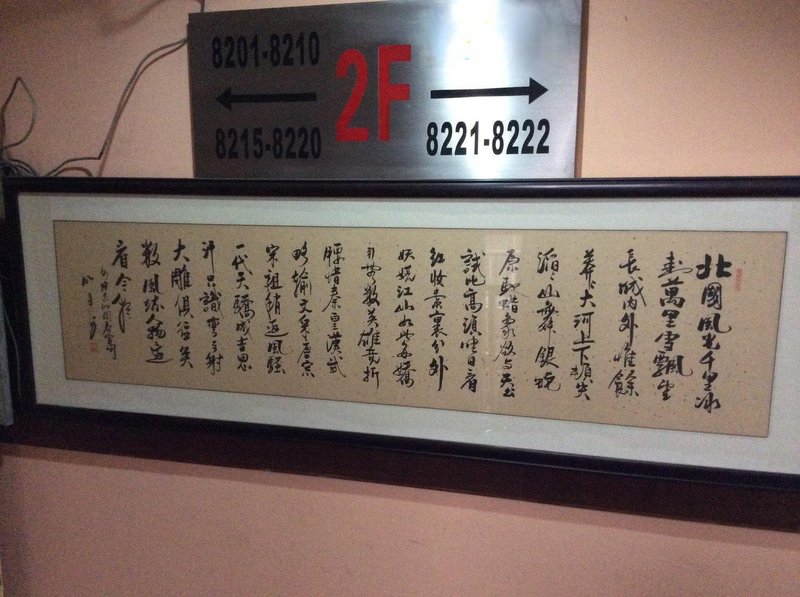 8201-8210
2F
8215-8220
8221-8222
北國風光千里冰
封萬里雪飄望
長城内外惟餘
莽々大河上下頓失
滔々山舞銀蛇
原馳蠟象欲与天公
試比高須晴日看
红妝素裹分外
妖娆江山如此多嬌
引無數英雄竞折
腰惜秦皇漢武
略输文采唐宗
宋祖稍逊風騷
一代天驕成吉思
汗只識彎弓射
大雕俱往矣
數風流人物還
看今朝